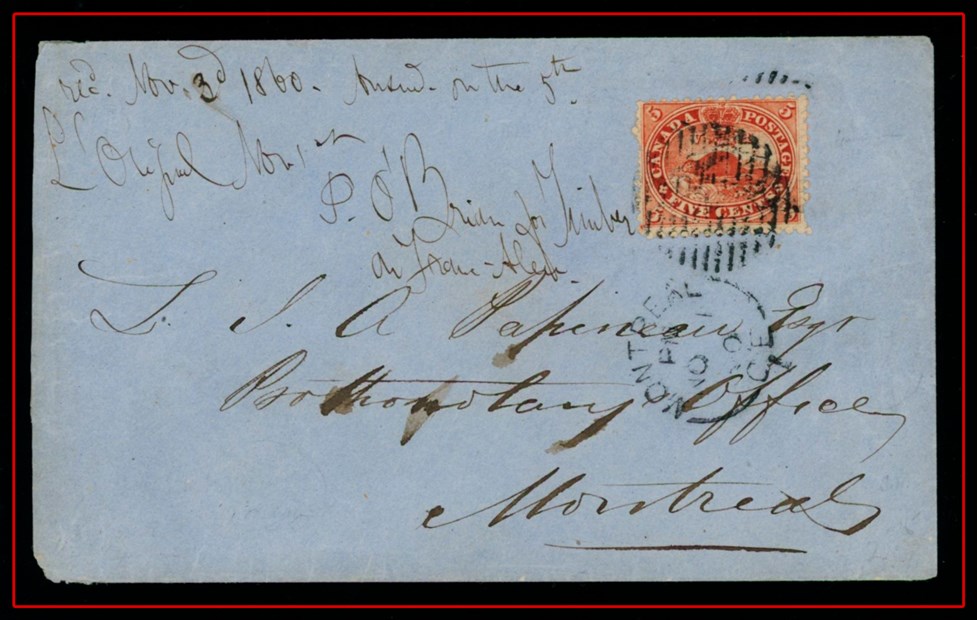 recd. Nov. 3d 1860. Answd. on the 5th
L'Orignal Nov 1st
P. O'Brian for Timber
on
L. J. A Papineau Esqr
Prothonotary Office
Montreal
5 5
CANADA POSTAGE
FIVE CENTS
5 5
MONTREAL
PM
NO 1
60